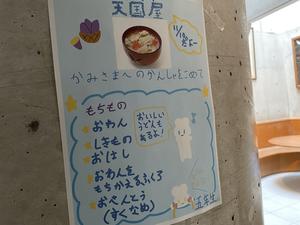 天国屋
11/10だよー
かみさまへのかんしゃをこめて
もちもの
おわん
しきもの
おはし
おわんを
もちかえるふくろ
おべんとう
(すくなめ)
おいしい
うどんも
あるよ!
五年生